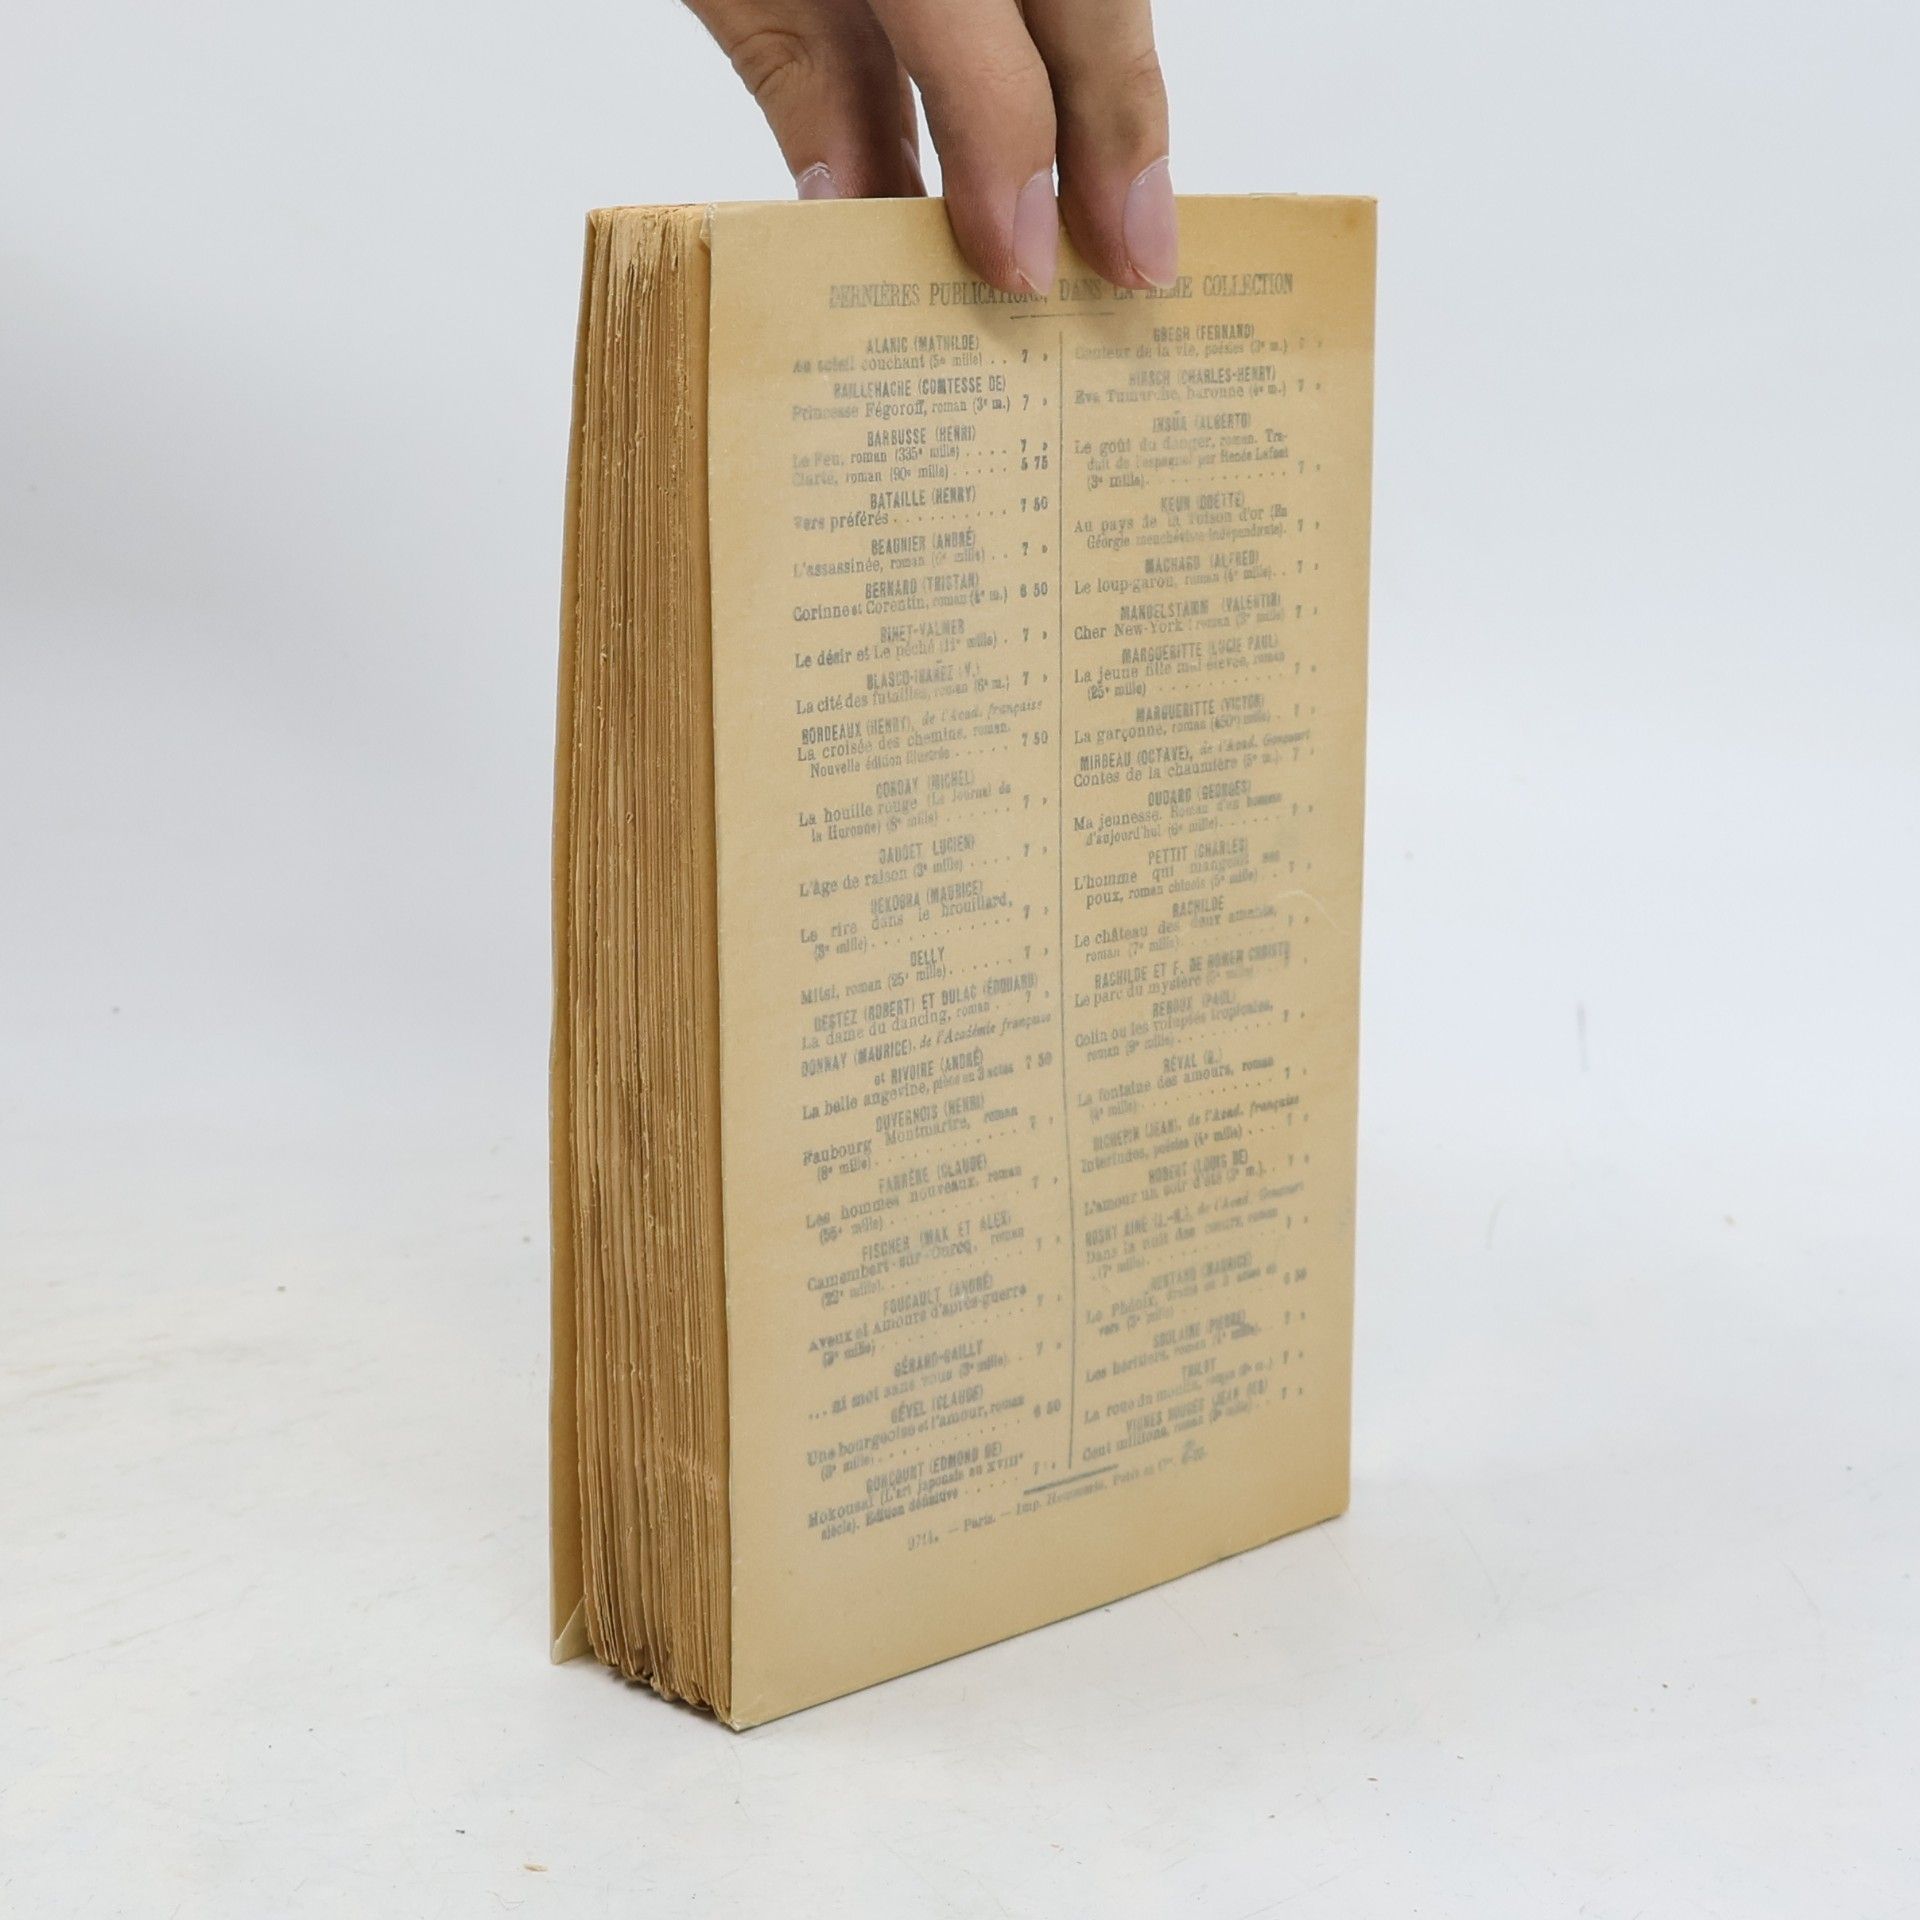 DERNIÈRES PUBLICATIONS, DANS LA MÊME COLLECTION
ALANIC (MATHILDE)
Au soleil couchant (5e mille) . . 7 »
BAILLEHACHE (COMTESSE DE)
Princesse Fégoroff, roman (3e m.) 7 »
BARBUSSE (HENRI)
Le Feu, roman (335e mille) . . . . 7 »
Clarté, roman (90e mille) . . . . . 5 75
BATAILLE (HENRY)
Vers préférés . . . . . . . . . . 7 50
BEAUNIER (ANDRÉ)
L'assassinée, roman (6e mille) . . 7 »
BERNARD (TRISTAN)
Corinne et Corentin, roman (4e m.) 6 50
BINET-VALMER
Le désir et Le péché (11e mille) . 7 »
BLASCO-IBAÑEZ (V.)
La cité des futailles, roman (6e m.) 7 »
BORDEAUX (HENRY), de l'Acad. française
La croisée des chemins, roman.
Nouvelle édition illustrée . . . . . 7 50
CORDAY (MICHEL)
La houille rouge (Le Journal de
la Huronne) (8e mille) . . . . . . 7 »
DAUDET LUCIEN)
L'âge de raison (3e mille) . . . . 7 »
DEKOBRA (MAURICE)
Le rire dans le brouillard,
(8e mille) . . . . . . . . . . . . 7 »
DELLY
Mitsi, roman (25e mille) . . . . . . 7 »
DESTEZ (ROBERT) ET DULAC (ÉDOUARD)
La dame du dancing, roman . . 7 »
DONNAY (MAURICE), de l'Académie française
et RIVOIRE (ANDRÉ)
La belle angevine, pièce en 3 actes 7 50
DUVERNOIS (HENRI)
Faubourg Montmartre, roman
(8e mille) . . . . . . . . . . . . 7 »
FARRÈRE (CLAUDE)
Les hommes nouveaux, roman
(55e mille) . . . . . . . . . . . 7 »
FISCHER (MAX ET ALEX)
Camembert-sur-Ourcq, roman
(22e mille) . . . . . . . . . . . 7 »
FOUCAULT (ANDRÉ)
Aveux et Amours d'après-guerre
(3e mille) . . . . . . . . . . . . 7 »
GÉRARD-GAILLY
... ni moi sans vous (3e mille) . . 7 »
GÉVEL (CLAUDE)
Une bourgeoise et l'amour, roman
(3e mille) . . . . . . . . . . . . 6 50
GONCOURT (EDMOND DE)
Hokousaï (L'art japonais au XVIIIe
siècle). Édition définitive . . . . . 7 »
GREGH (FERNAND)
Couleur de la vie, poésies (3e m.)
HIRSCH (CHARLES-HENRY)
Eva Tumarche, baronne (4e m.) 7 »
INSÚA (ALBERTO)
Le goût du danger, roman. Tra-
duit de l'espagnol par Renée Lafont
(3e mille) . . . . . . . . . . . . 7 »
KEUN (ODETTE)
Au pays de la Toison d'or (En
Géorgie menchéviste indépendante). 7 »
MACHARD (ALFRED)
Le loup-garou, roman (4e mille) . . 7 »
MANDELSTAMM (VALENTIN)
Cher New-York ! roman (3e mille) 7 »
MARGUERITTE (LUCIE PAUL)
La jeune fille mal élevée, roman
(25e mille) . . . . . . . . . . . 7 »
MARGUERITTE (VICTOR)
La garçonne, roman (450e mille) . 7 »
MIRBEAU (OCTAVE), de l'Acad. Goncourt
Contes de la chaumière (5e m.). 7 »
OUDARD (GEORGES)
Ma jeunesse. Roman d'un homme
d'aujourd'hui (6e mille) . . . . . . 7 »
PETTIT (CHARLES)
L'homme qui mangeait ses
poux, roman chinois (5e mille) . . 7 »
RACHILDE
Le château des deux amants,
roman (7e mille) . . . . . . . . . 7 »
RACHILDE ET F. DE HOMEM CHRISTO
Le parc du mystère (5e mille) . . 7 »
REBOUX (PAUL)
Colin ou les voluptés tropicales,
roman (9e mille) . . . . . . . . . 7 »
RÉVAL (G.)
La fontaine des amours, roman
(4e mille) . . . . . . . . . . . . 7 »
RICHEPIN (JEAN), de l'Acad. française
Interludes, poésies (4e mille) . . . 7 »
ROBERT (LOUIS DE)
L'amour un soir d'été (5e m.) . . 7 »
ROSNY AINÉ (J.-H.), de l'Acad. Goncourt
Dans la nuit des cœurs, roman
(7e mille) . . . . . . . . . . . . 7 »
ROSTAND (MAURICE)
Le Phénix, drame en 3 actes et
vers (3e mille) . . . . . . . . . . 6 50
SOULAINE (PIERRE)
Les héritiers, roman (4e mille) . . 7 »
La roue du moulin, 7 »
VIGNES ROUGES (JEAN DES)
Cent millions, roman (3e mille) . . 7 »
9714. — Paris. — Imp. Hemmerlé, Petit et Cie.